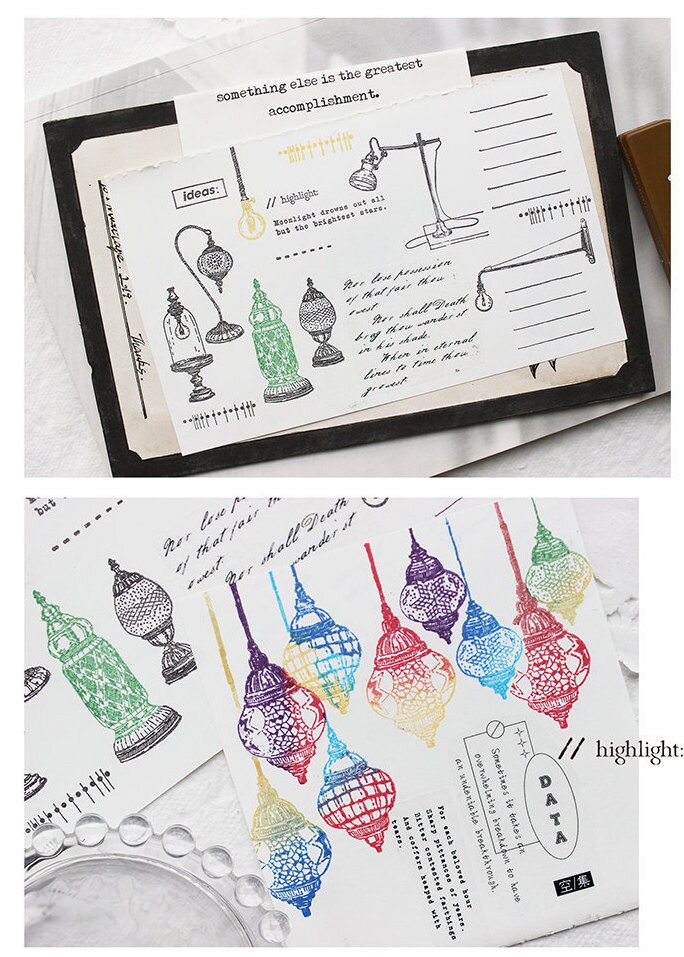 something else is the greatest
accomplishment.
ideas:
// highlight:
Moonlight drowns out all
but the brightest stars.
Nor lose possession
of that fair thou
owest
Nor shall Death
brag thou wander'st
in his shade.
When in eternal
lines to time thou
growest.
Thanks.
but
Nor lose
of that fair thou
owest.
Nor shall Death
wander'st
// highlight:
DATA
Sometimes it takes an
overwhelming breakdown to have
an undeniable breakthrough.
For each beloved hour
Sharp pittances of years.
Bitter contested farthings
And coffers heaped with
tears.
空集